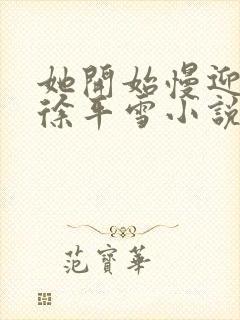 她開始慢迎
徐平雪小說
范寶華